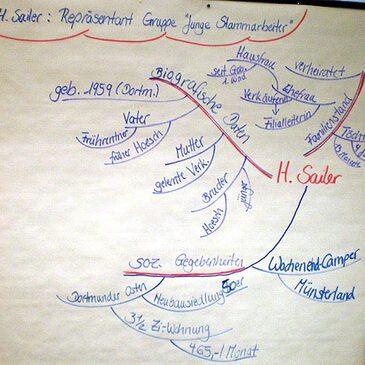 H. Sailer : Repräsentant Gruppe "Junge Stammarbeiter"
Biografische Daten
geb. 1959 (Dortm.)
Vater
Frührentner
früher Hoesch
Mutter
gelernte Verk.
Bruder
Hoesch
Hausfrau
Verkäuferin
Ehefrau
Filialleiterin
verheiratet
Familienstand
H. Sailer
soz. Gegebenheiten
Dortmunder Osten
Neubausiedlung 50er
3 1/2 Zi-Wohnung
465,-/Monat
Wochenend-Camper
Münsterland